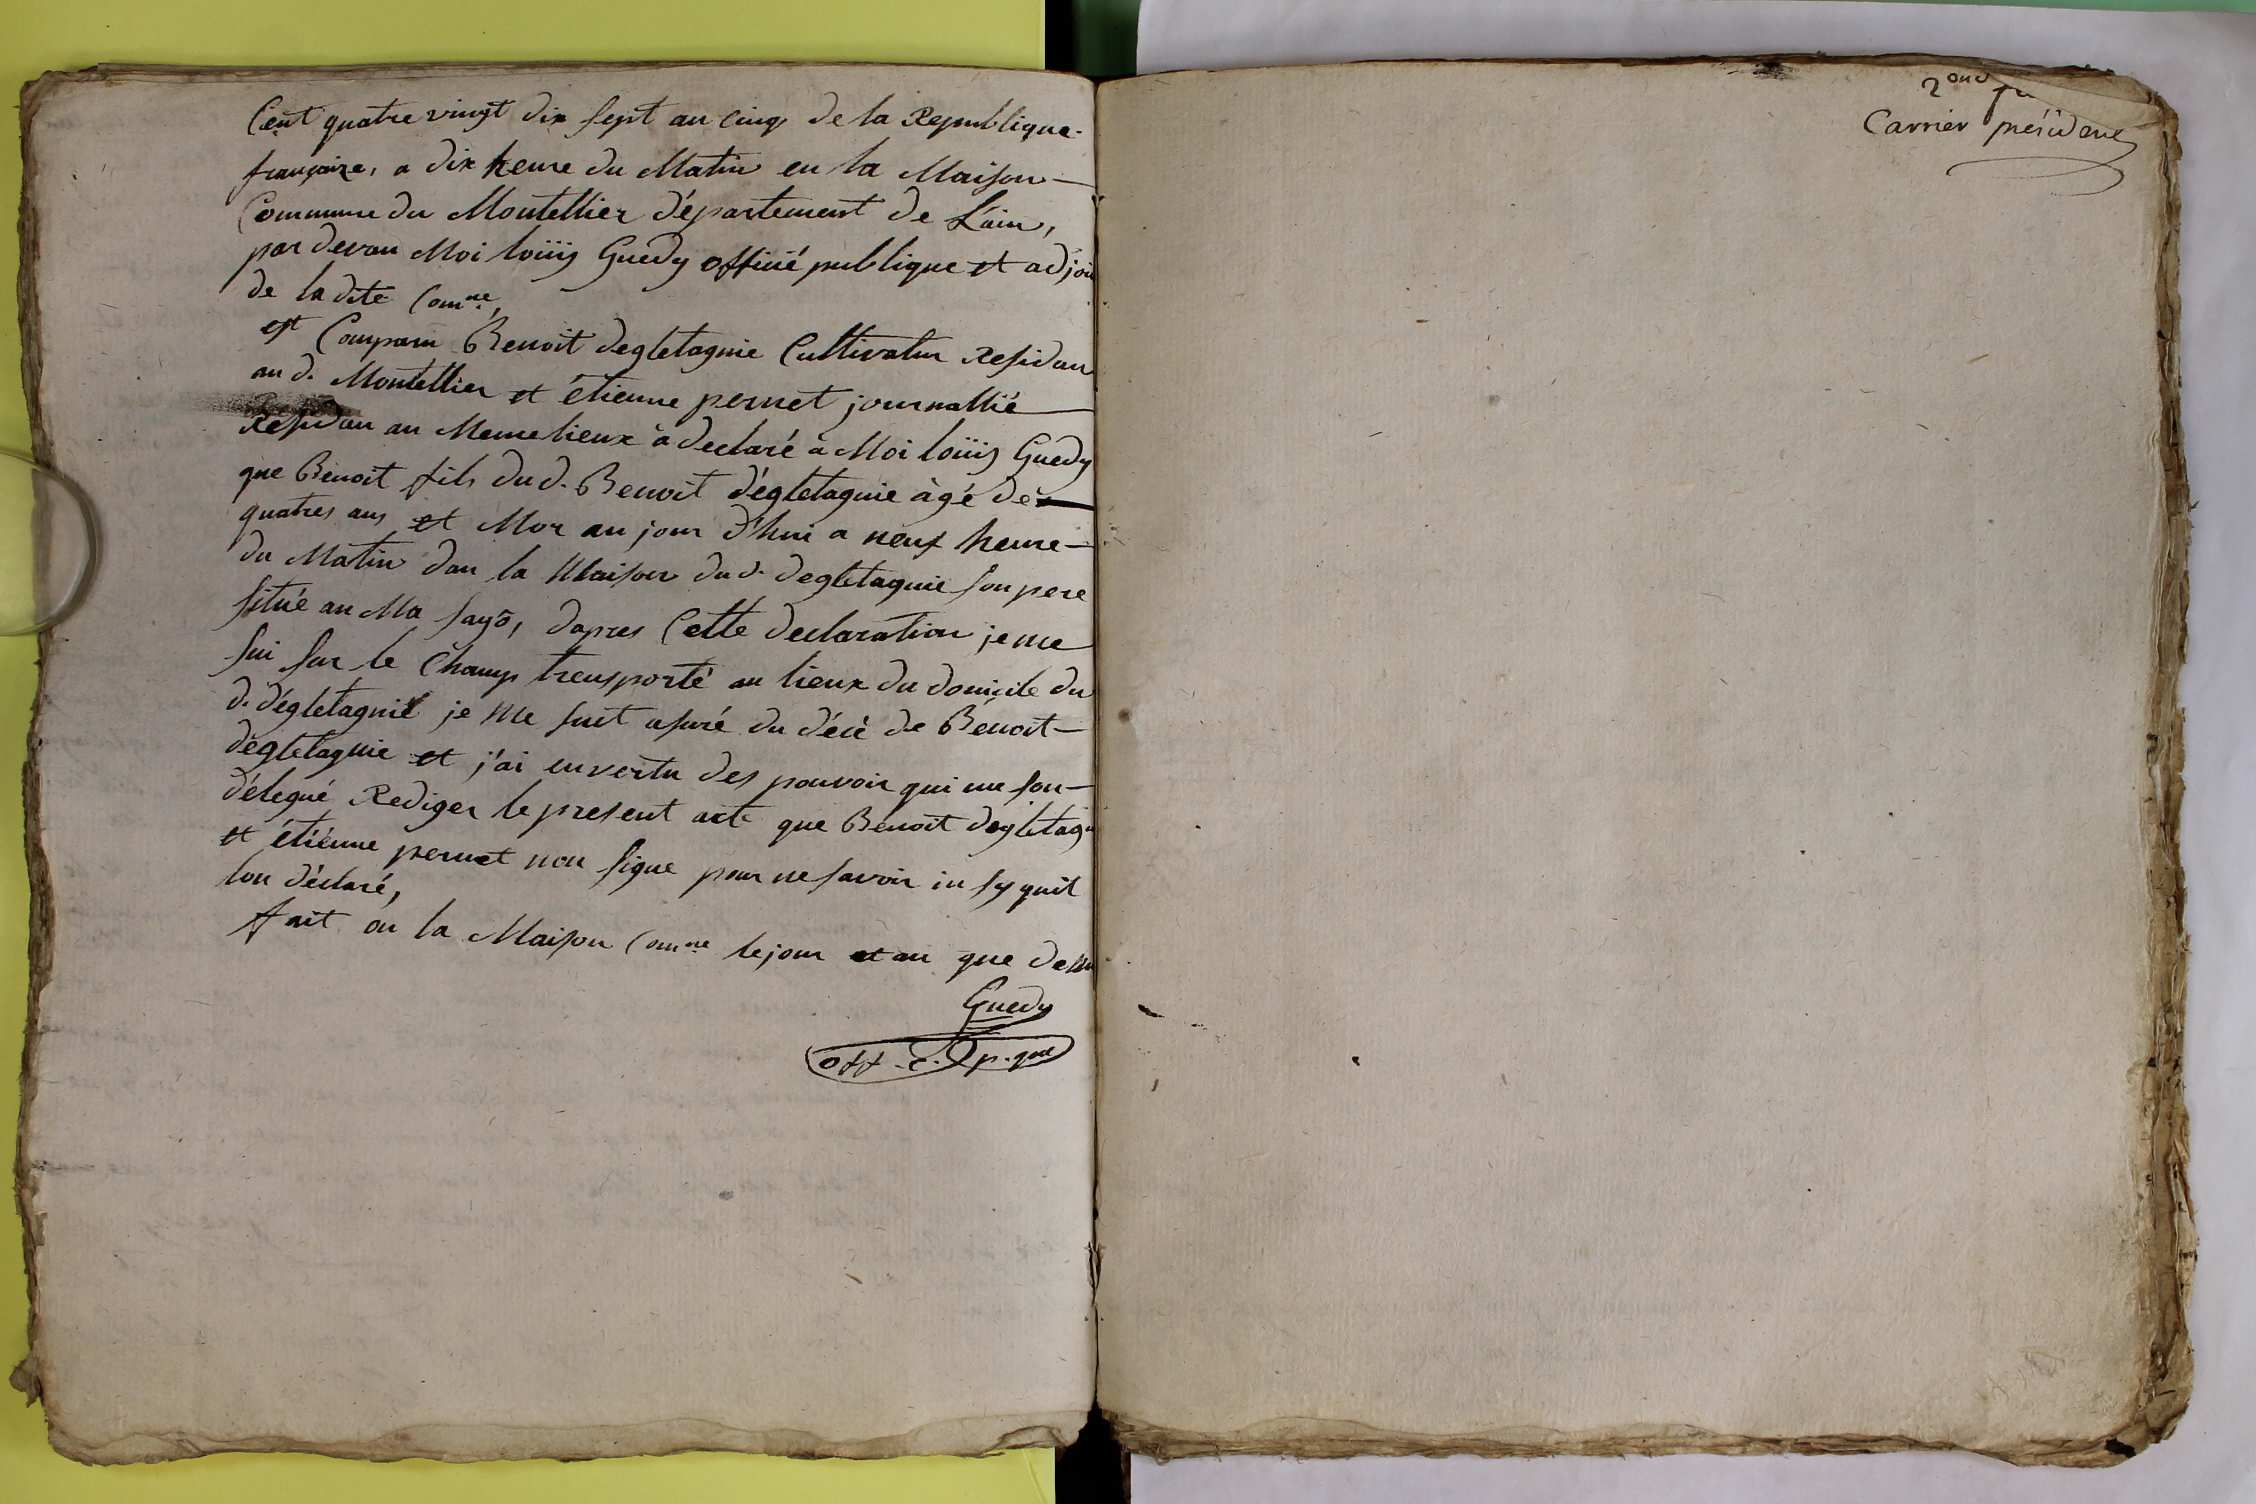 Cent quatre vingt dix sept an cinq de la Republique
françaize, a dix heure du Matin en la Maison
Commune du Montellier département de L'ain,
par devan Moi loüis Guedy offitié publique et adjoin
de la dite Comne,
est Comparu Benoit degletagnie Cultivateur Residan
au d. Montellier et étienne pernet journallié
Residan au Meme lieux à declaré à Moi loüis Guedy
que Benoit fils du d. Benoit dégletagnie àgé de
quatres ans et Mor au jour d'hui a neuf heure
du Matin dan la Maison du d. degletagnie son pere
situé au Ma sayo, dapres Cette declaration je me
sui sur le Champ trensporté au lieux du domicile du
d. dégletagnié je me suit asuré du décè de Bénoit
dégletagnie et j'ai en vertu des pouvoir qui me son
délegué Rediger le present acte que Benoit degletagn
et étiénne pernet non signe pour ne savoir in sy quil
lon déclaré,
fait en la Maison Comne le jour et an que desu
Guedy
off. p. que
2ond
Carrier président